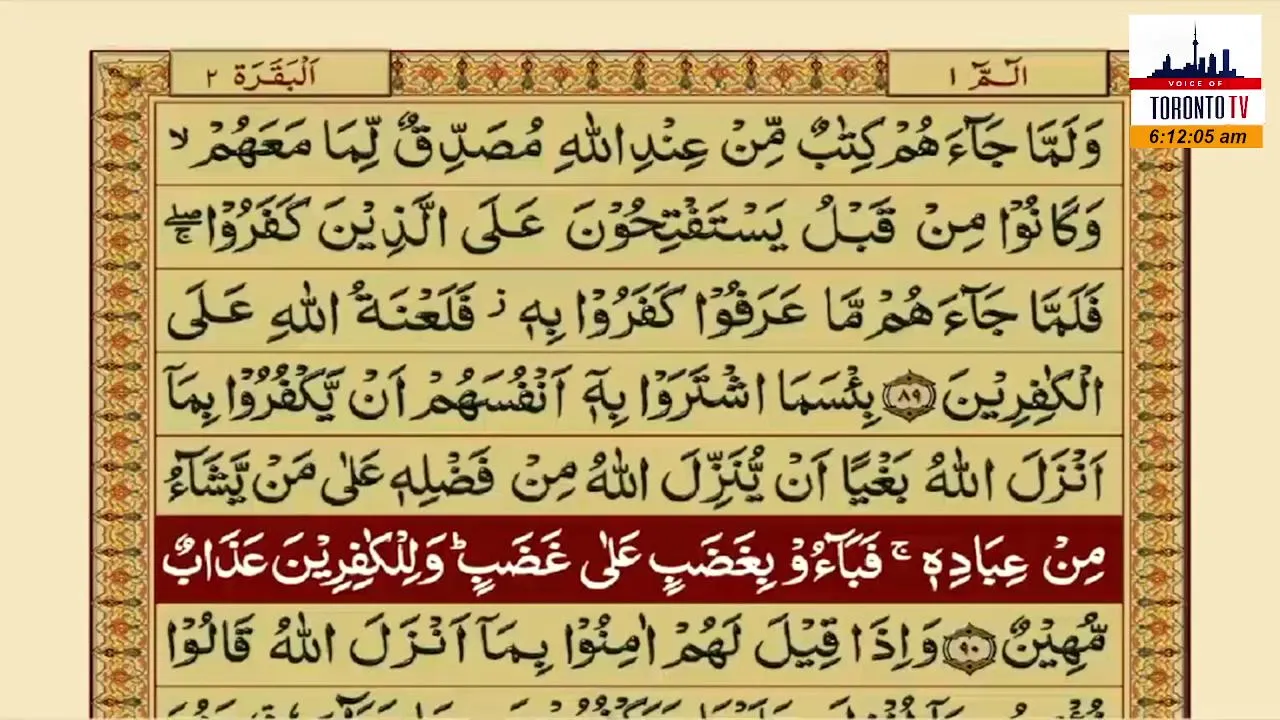 الٓمّٓ ۱
اَلْبَقَرَة ۲
VOICE OF
TORONTO TV
6:12:05 am
وَلَمَّا جَآءَهُمْ كِتٰبٌ مِّنْ عِنْدِ اللّٰهِ مُصَدِّقٌ لِّمَا مَعَهُمْ ۙ
وَكَانُوْا مِنْ قَبْلُ يَسْتَفْتِحُوْنَ عَلَى الَّذِيْنَ كَفَرُوْا ۖۚ
فَلَمَّا جَآءَهُمْ مَّا عَرَفُوْا كَفَرُوْا بِهٖ ؗ فَلَعْنَةُ اللّٰهِ عَلَى
الْكٰفِرِيْنَ ﴿۸۹﴾ بِئْسَمَا اشْتَرَوْا بِهٖۤ اَنْفُسَهُمْ اَنْ يَّكْفُرُوْا بِمَاۤ
اَنْزَلَ اللّٰهُ بَغْيًا اَنْ يُّنَزِّلَ اللّٰهُ مِنْ فَضْلِهٖ عَلٰى مَنْ يَّشَآءُ
مِنْ عِبَادِهٖ ۚ فَبَآءُوْ بِغَضَبٍ عَلٰى غَضَبٍ ؕ وَلِلْكٰفِرِيْنَ عَذَابٌ
مُّهِيْنٌ ﴿۹۰﴾ وَاِذَا قِيْلَ لَهُمْ اٰمِنُوْا بِمَاۤ اَنْزَلَ اللّٰهُ قَالُوْا